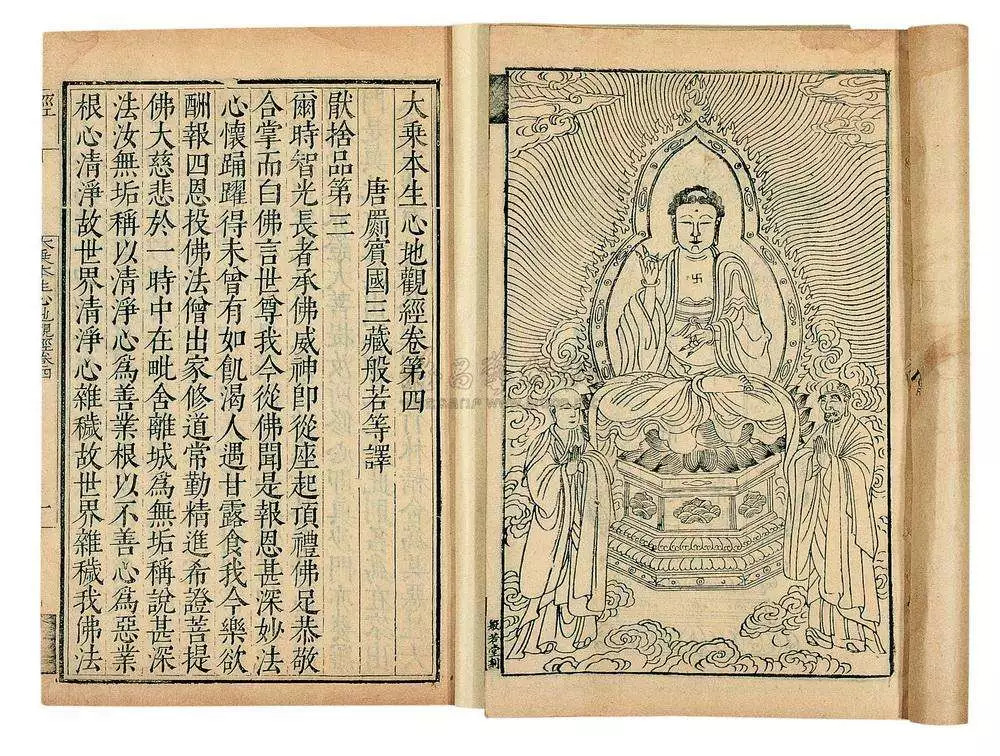 大乘本生心地觀經卷第四
唐罽賓國三藏般若等譯
猒捨品第三
爾時智光長者承佛威神即從座起頂禮佛足恭敬
合掌而白佛言世尊我今從佛聞是報恩甚深妙法
心懷踊躍得未曾有如飢渴人遇甘露食我今樂欲
酬報四恩投佛法僧出家修道常勤精進希證菩提
佛大慈悲於一時中在毗舍離城爲無垢稱說甚深
法汝無垢稱以清淨心爲善業根以不善心爲惡業
根心清淨故世界清淨心雜穢故世界雜穢我佛法
經
大乘本生心地觀經卷四
一
般若堂刻
卍